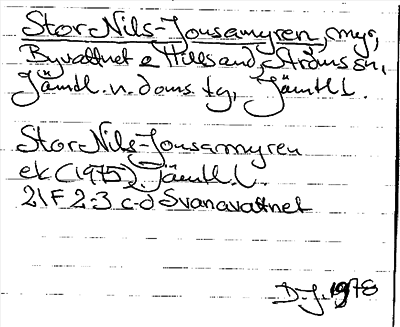 Stor Nils-Jonsamyren, myr,
Byvattnet o Hillsand, Ströms sn,
Jämtl. n. doms. tg, Jämtl l.
Stor Nils-Jonsamyren
ek (1975). Jämtl. l.
21F 2-3 c-d Svanavattnet
D.J. 1978